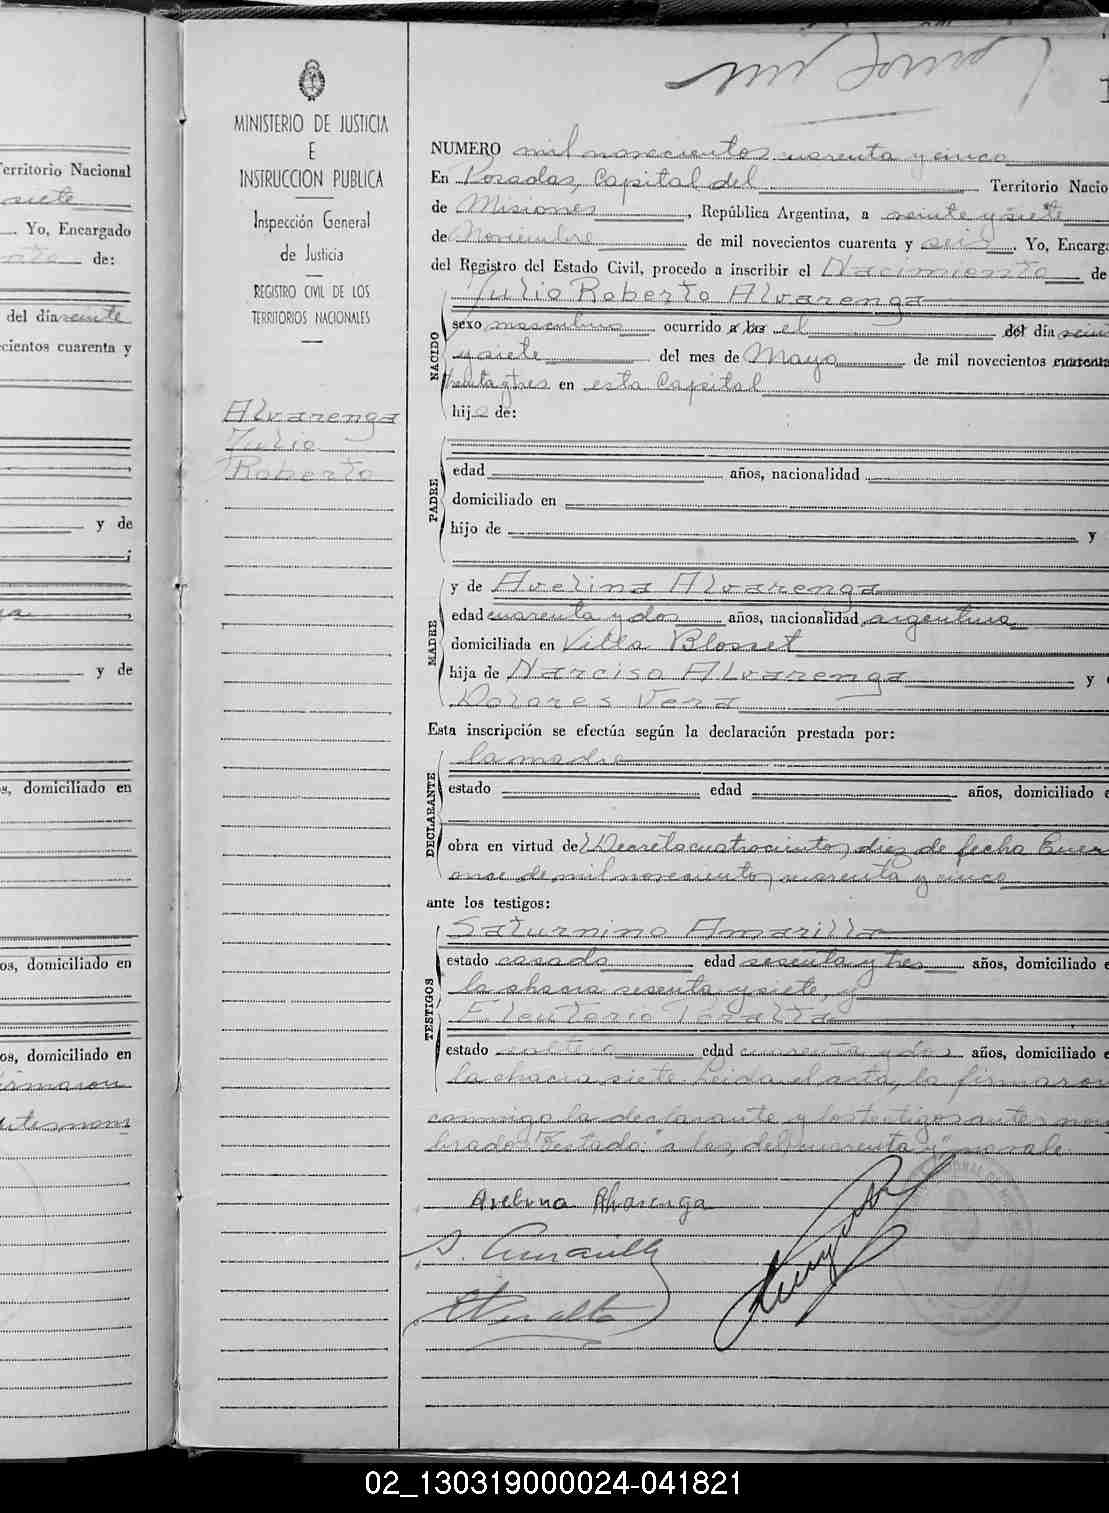 Territorio Nacional
siete
Yo, Encargado
de:
del día veinte
cientos cuarenta y
y de
;
y de
s, domiciliado en
os, domiciliado en
os, domiciliado en
firmaron
MINISTERIO DE JUSTICIA
E
INSTRUCCION PUBLICA
Inspección General
de Justicia
REGISTRO CIVIL DE LOS
TERRITORIOS NACIONALES
Alvarenga
Julio
Roberto
NUMERO mil novecientos cuarenta y cinco
En Posadas, Capital del Territorio Nacio
de Misiones, República Argentina, a veinte y siete
de Noviembre de mil novecientos cuarenta y seis. Yo, Encarga
del Registro del Estado Civil, procedo a inscribir el Nacimiento de
NACIDO
Julio Roberto Alvarenga
sexo masculino ocurrido a las el del día vein
y siete del mes de Mayo de mil novecientos cuarenta
treinta y tres en esta Capital
hijo de:
PADRE
edad años, nacionalidad
domiciliado en
hijo de y
MADRE
y de Avelina Alvarenga
edad cuarenta y dos años, nacionalidad argentina
domiciliada en Villa Blosset
hija de Narciso Alvarenga y
Dolores Vera
Esta inscripción se efectúa según la declaración prestada por:
DECLARANTE
la madre
estado edad años, domiciliado e
obra en virtud del Decreto cuatrocientos diez de fecha Ener
once de mil novecientos cuarenta y cinco
ante los testigos:
TESTIGOS
Saturnino Amarilla
estado casado edad sesenta y tres años, domiciliado e
la chacra sesenta y siete, y
Eleuterio Peralta
estado soltero edad cuarenta y dos años, domiciliado e
la chacra siete. Leida el acta, la firmaron
conmigo la declarante y los testigos antes nom
brados. Testado: "a las, del, cuarenta y" no vale.
Avelina Alvarenga
S. Amarilla
E Peralta
02_130319000024-041821